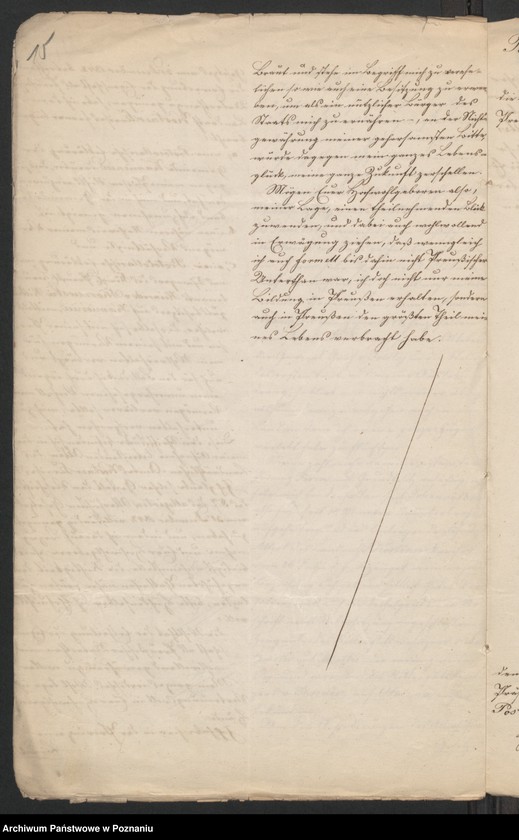 15
Braut und stehe im Begriff mich zu verehe-
lichen so wie auch eine Besitzung zu erwer
ben, um als ein nützlicher Bürger des
Staats mich zu ernähren –, an der Nicht
gewährung meiner gehorsamsten Bitte
würde dagegen mein ganzes Lebens-
glück, meine ganze Zukunft zerschellen.
Mögen Euer Hochwohlgeboren also,
meiner Lage, einen theilnehmenden Blick
zuwenden, und dabei auch wohlwollend
in Erwägung ziehen, daß wenngleich
ich auch formell bis dahin nicht Preußischer
Unterthan war, ich doch nicht nur meine
Bildung in Preußen erhalten, sondern
auch in Preußen den größten Theil mei
nes Lebens verbracht habe.
die
den
Archiwum Państwowe w Poznaniu